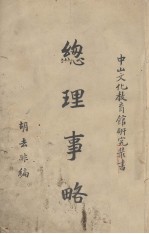 中山文化教育館研究叢書
總理事略
胡去非編